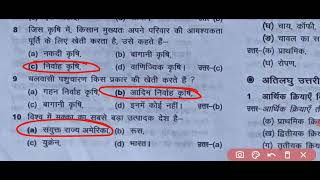 8 जिस कृषि में, किसान मुख्यतः अपने परिवार की आवश्यकता
पूर्ति के लिए खेती करता है, उसे कहते हैं–
(a) नकदी कृषि, (b) बागानी कृषि,
(c) निर्वाह कृषि, (d) वाणिज्यिक कृषि। उत्तर–(c)
9 चलवासी पशुचारण किस प्रकार की खेती करते हैं ?
(a) गहन निर्वाह कृषि, (b) आदिम निर्वाह कृषि,
(c) बागानी कृषि, (d) इनमें कोई नहीं। उत्तर–(b)
10 विश्व में मक्का का सबसे बड़ा उत्पादक देश है–
(a) संयुक्त राज्य अमेरिका, (b) रूस,
(c) यूक्रेन, (d) भारत। उत्तर–(a)
(घ) चाय, कॉफी,
(ङ) चावल का
उत्तर–(क) प्राथमिक,
(घ) रोपण,
अतिलघु उत्तरी
1 आर्थिक क्रियाएँ
उत्तर–आर्थिक क्रियाएँ
(क) प्राथमिक
(ख) द्वितीयक क्रि
(ग) तृतीयक क्रि